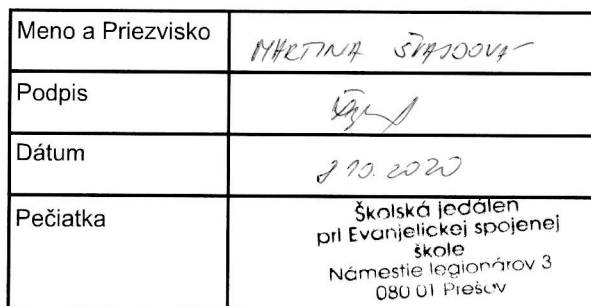 Meno a Priezvisko MARTINA ŠVAJDOVÁ
Podpis
Dátum 8 10. 2020
Pečiatka
Školská jedáleň
pri Evanjelickej spojenej
škole
Námestie legionárov 3
080 01 Prešov